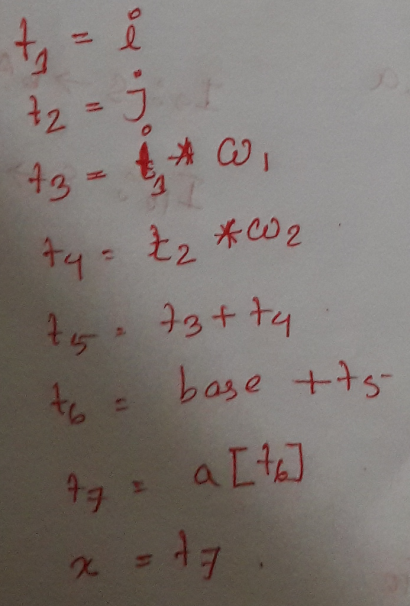 t1 = i
t2 = j
t3 = t1 * ω1
t4 = t2 * ω2
t5 = t3 + t4
t6 = base + t5
t7 = a[t6]
x = t7.